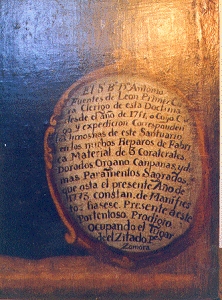 El S.r D.r Antonio
Fuentes de Leon Primer Ca
Clerigo de esta Doctrina
desde el año de 1711, a Cuyo Ca
go, y expedicion Corresponden
las limosnas de este Santuario
en los muchos Reparos de Fabri
ca Material de
Dorados, Organo Campanas, y de
mas Paramentos Sagrados
que asta el presente Año de
1775 constan, de Manifies
to
portentoso, Prodigio
Ocupando el lugar
del Zitado P.e
Zamora